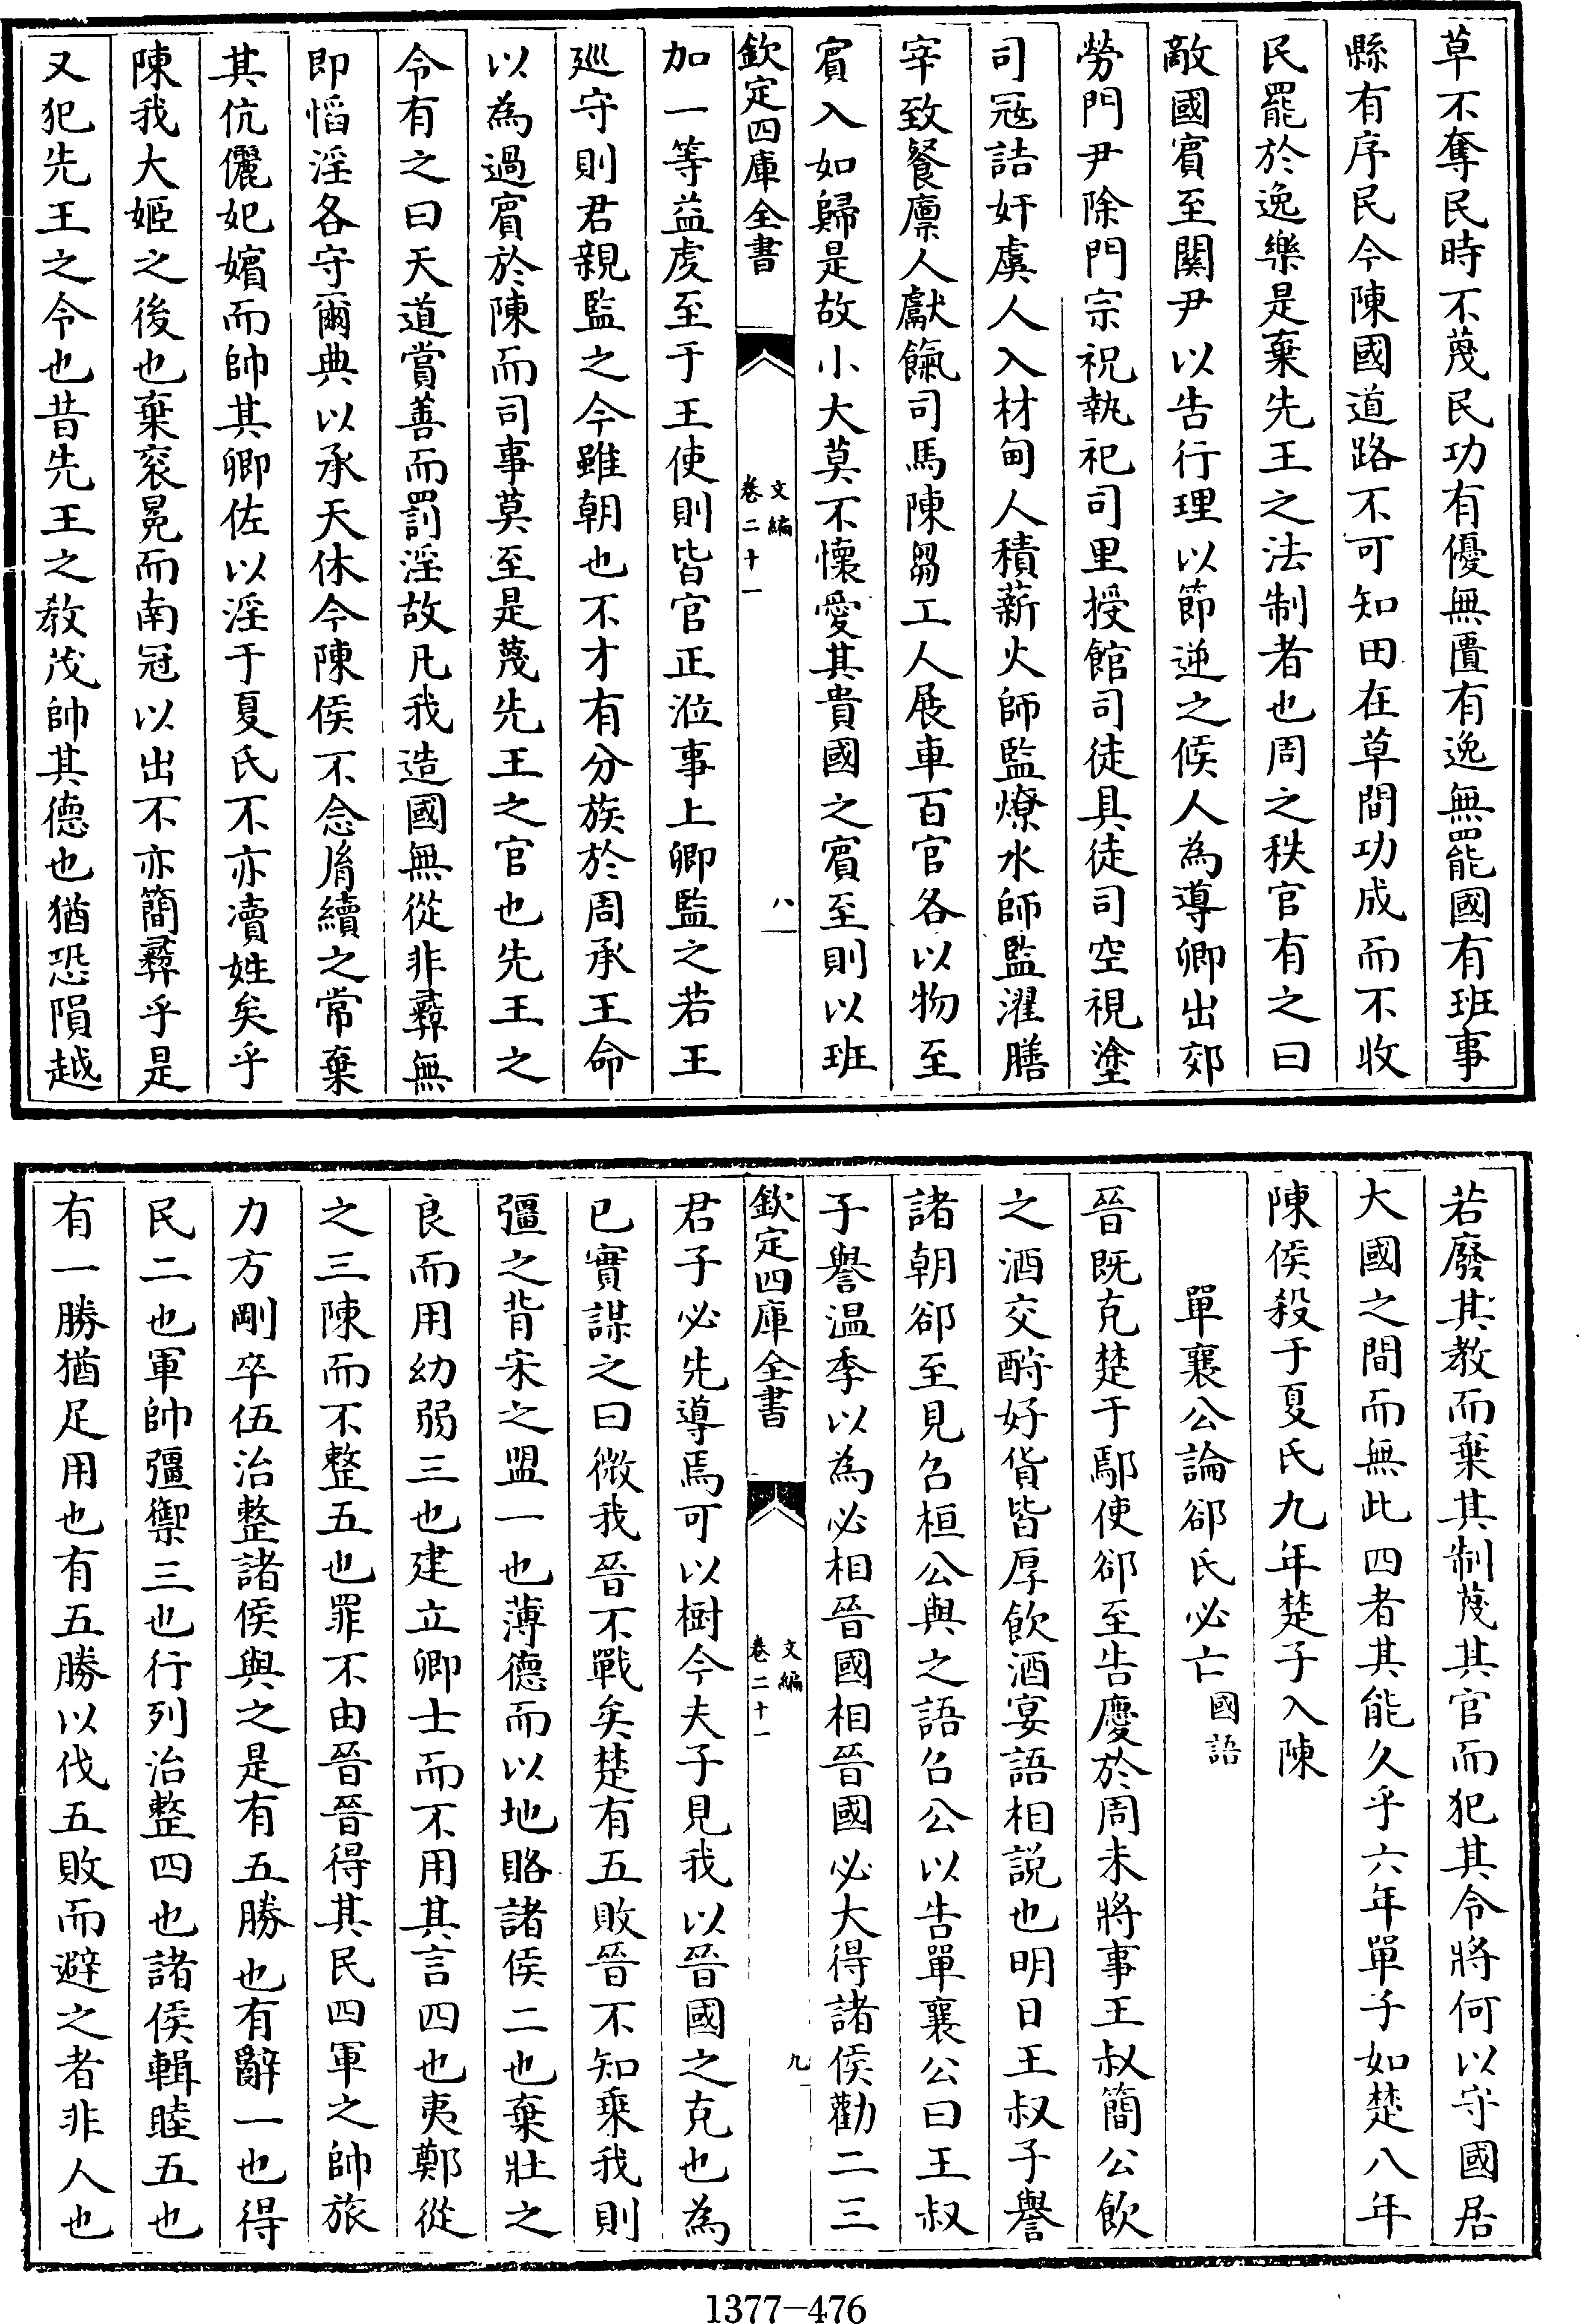 草不奪民時不蔑民功有優無匱有逸無罷國有班事
縣有序民今陳國道路不可知田在草間功成而不收
民罷於逸樂是棄先王之法制者也周之秩官有之曰
敵國賓至關尹以告行理以節逆之候人為導卿出郊
勞門尹除門宗祝執祀司里授館司徒具徒司空視塗
司冦詰奸虞人入材甸人積薪火師監燎水師監濯膳
宰致餐廪人獻餼司馬陳芻工人展車百官各以物至
賓入如歸是故小大莫不懷愛其貴國之賓至則以班
欽定四庫全書
文編
卷二十一
八
加一等益虔至于王使則皆官正涖事上卿監之若王
廵守則君親監之今雖朝也不才有分族於周承王命
以為過賓於陳而司事莫至是蔑先王之官也先王之
令有之曰天道賞善而罰淫故凡我造國無從非彛無
即慆淫各守爾典以承天休今陳侯不念胤續之常棄
其伉儷妃嬪而帥其卿佐以淫于夏氏不亦凟姓矣乎
陳我大姬之後也棄衮冕而南冠以出不亦簡彛乎是
又犯先王之令也昔先王之教茂帥其德也猶恐隕越
若廢其教而棄其制蔑其官而犯其令將何以守國居
大國之間而無此四者其能久乎六年單子如楚八年
陳侯殺于夏氏九年楚子入陳
單襄公論郤氏必亡國語
晉既克楚于鄢使郤至告慶於周未將事王叔簡公飲
之酒交酧好貨皆厚飲酒宴語相説也明日王叔子譽
諸朝郤至見召桓公與之語召公以告單襄公曰王叔
子譽温季以為必相晉國相晉國必大得諸侯勸二三
欽定四庫全書
文編
卷二十一
九
君子必先導焉可以樹今夫子見我以晉國之克也為
已實謀之曰微我晉不戰矣楚有五敗晉不知乘我則
彊之背宋之盟一也薄德而以地賂諸侯二也棄壯之
良而用幼弱三也建立卿士而不用其言四也夷鄭從
之三陳而不整五也罪不由晉晉得其民四軍之帥旅
力方剛卒伍治整諸侯與之是有五勝也有辭一也得
民二也軍帥彊禦三也行列治整四也諸侯輯睦五也
有一勝猶足用也有五勝以伐五敗而避之者非人也
1377-476